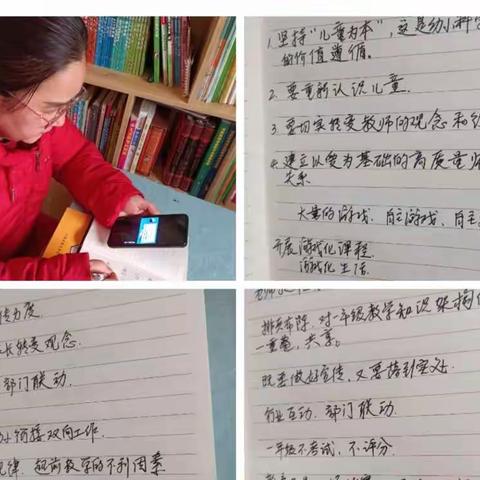 1. 坚持“儿童为本”，这是幼小科学
的价值遵循。
2. 要重新认识儿童.
3. 要切实转变教师的观念和
4. 建立以爱为基础的高质量师
关系
大量的游戏、自主游戏、自主
开展游戏化课程.
游戏化生活.
传力度.
长转变观念.
部门联动.
衔接双向工作.
规律. 超前教学的不利因素
排兵布阵. 对一年级教学知识架构
一重奏, 共享。
既要做好宣传, 又要落到实处.
行业互动. 部门联动.
一年级不考试, 不评分.